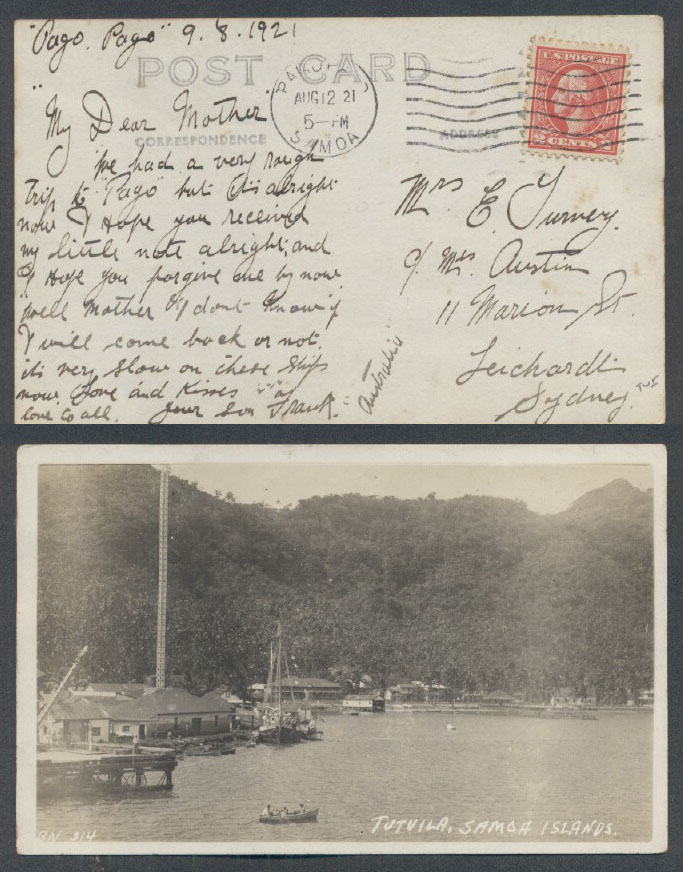 "Pago. Pago" 9. 8. 1921
POST CARD
PAGO PAGO
AUG 12 21
5 - PM
SAMOA
U.S. POSTAGE
2 CENTS 2
"My Dear Mother"
CORRESPONDENCE
ADDRESS
We had a very rough
Trip to "Pago" but it's alright
now I Hope you received
my little note alright, and
I Hope you forgive me by now.
well Mother I dont know if
I will come back or not.
it's very slow on these ships
now Love and Kisses
love to all. your Son Frank.
Mrs E. Turvey.
c/ Mrs Austin
11 Marion St.
Leichardt
Sydney.
"Australia"
314
TUTUILA, SAMOA ISLANDS.